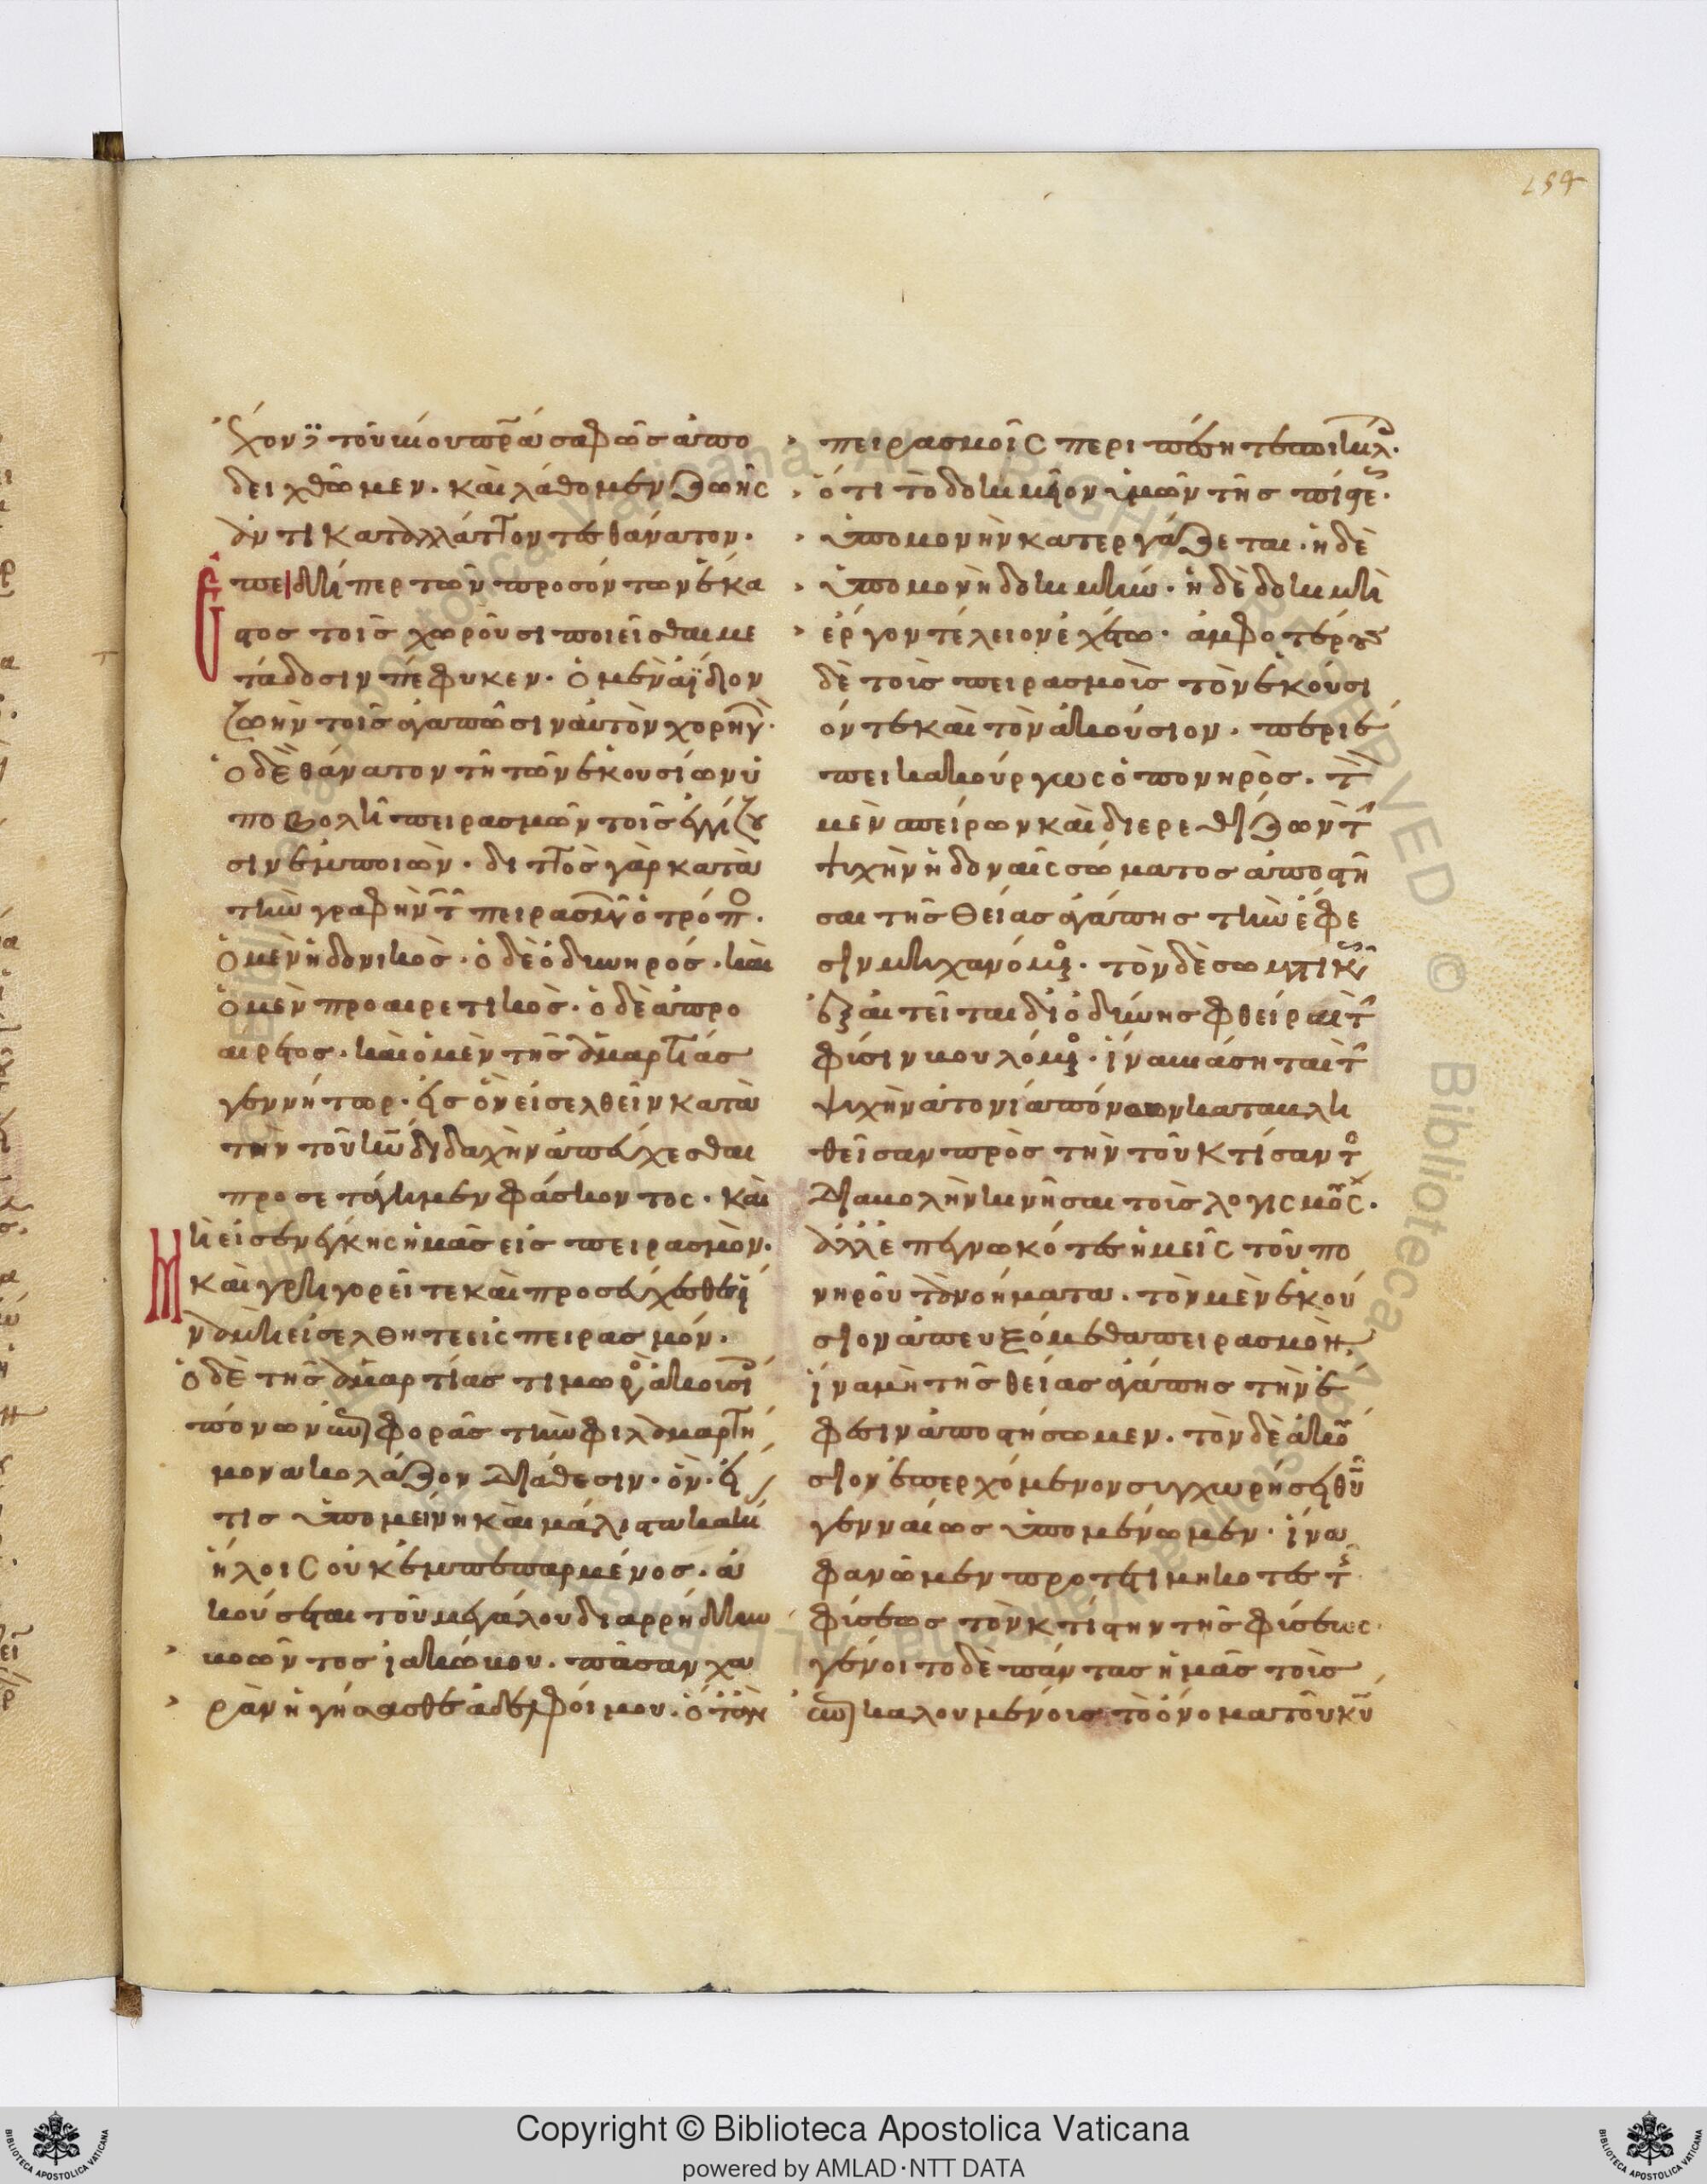 χον// τοῦ βίου πέρασ σαφῶσ ἀπο
δειχθῶμεν· καὶ λάθομεν ζωῆς
ἀντικαταλλάττοντες θάνατον·
Ἐπειδήπερ τῶν προσόντων ἑκα
στος τοῖς χωροῦσι ποιεῖσθαι με
τάδοσιν πέφυκεν· ὁ μὲν ἀΐδιον
ζωὴν τοῖς ἀγαπῶσιν αὐτὸν χορηγῶν·
ὁ δὲ θάνατον τῆ τῶν ἑκουσίων ὑ
ποβολῆ πειρασμῶν τοῖς ἐγγίζου
σιν ἐμποιῶν· διττὸς γὰρ κατὰ
τὴν γραφὴν τῶν πειρασμῶν ὁ τρόπος·
ὁ μὲν ἡδονικὸς· ὁ δὲ ὀδυνηρός· καὶ
ὁ μὲν προαιρετικὸς· ὁ δὲ ἀπρο
αιρετος· καὶ ὁ μὲν τῆς ἁμαρτίας
γεννήτωρ· εἰς ὃν εἰσελθεῖν κατὰ
τὴν τοῦ κυ διδαχὴν ἀπεύχεσθαι
προσετάγημεν φάσκοντος· καὶ
Μὴ εἰσενέγκης ἡμᾶς εἰς πειρασμὸν·
καὶ γρηγορεῖτε καὶ προσεύχεσθε ἵ
να μὴ εἰσέλθητε εἰς πειρασμόν·
ὁ δὲ τῆς ἁμαρτίας τιμωρὸς ἀκουσί
πόνων ἐπιφορᾶς τὴν φιλαμαρτή
μονα κολάζον διάθεσιν· ὃν· εἴ
τις ὑπομείνη καὶ μάλιστα κακί
ἥλοις οὐκ ἐμπεπαρμένος· ἀ
κούσεται τοῦ μεγάλου διαρρήδην
βοῶντος ἰακώβου· πᾶσαν χα
ρὰν ἡγήσασθε ἀδελφοί μου· ὅταν
πειρασμοῖς περιπέσητε ποικίλ·
ὅτι τὸ δοκίμιον ὑμῶν τῆς πίστε·
ὑπομονὴν κατεργάζεται· ἡ δὲ
ὑπομονὴ δοκιμήν· ἡ δὲ δοκιμὴ
ἔργον τέλειον ἐχέτω· ἀμφοτέροις
δὲ τοῖς πειρασμοῖς τὸν ἑκούσι
όν τε καὶ τὸν ἀκούσιον· περιέ
πει κακούργως ὁ πονηρὸς· τὸν
μὲν σπείρων καὶ διερεθίζων τὴν
ψυχὴν ἡδοναῖς σώματος ἀποστῆ
σαι τῆς θείας ἀγάπης τὴν ἔφε
σιν μηχανόμενος· τὸν δὲ σωματικῶς
ἐξαιτεῖται δι' ὀδύνης φθείραι τὴν
φύσιν βουλόμενος· ἵνα βιάσηται τὴν
ψυχὴν ἀτονία πόνων καταβλη
θεῖσαν πρὸς τὴν τοῦ κτίσαντος
διαβολὴν κινῆσαι τοῖς λογισμοὺς·
ἀλλ' ἐπεγνωκότες ἡμεῖς τοῦ πο
νηροῦ τὰ νοήματα· τὸν μὲν ἑκού
σιον ἀπευξόμεθα πειρασμὸν·
ἵνα μὴ τῆς θείας ἀγάπης τὴν ἔ
φεσιν ἀποστήσωμεν· τὸν δὲ ἀκού
σιον ἐπερχόμενον συγχωρήσει θυ
γενναίως ὑπομένωμεν· ἵνα
φανῶμεν προτετιμηκότες τῆς
φύσεως τὸν κτίστην τῆς φύσεως·
γένοιτο δὲ πάντας ἡμᾶς τοὺς
ἐπικαλουμένους τὸ ὄνομα τοῦ κυ
Copyright © Biblioteca Apostolica Vaticana
powered by AMLAD·NTT DATA